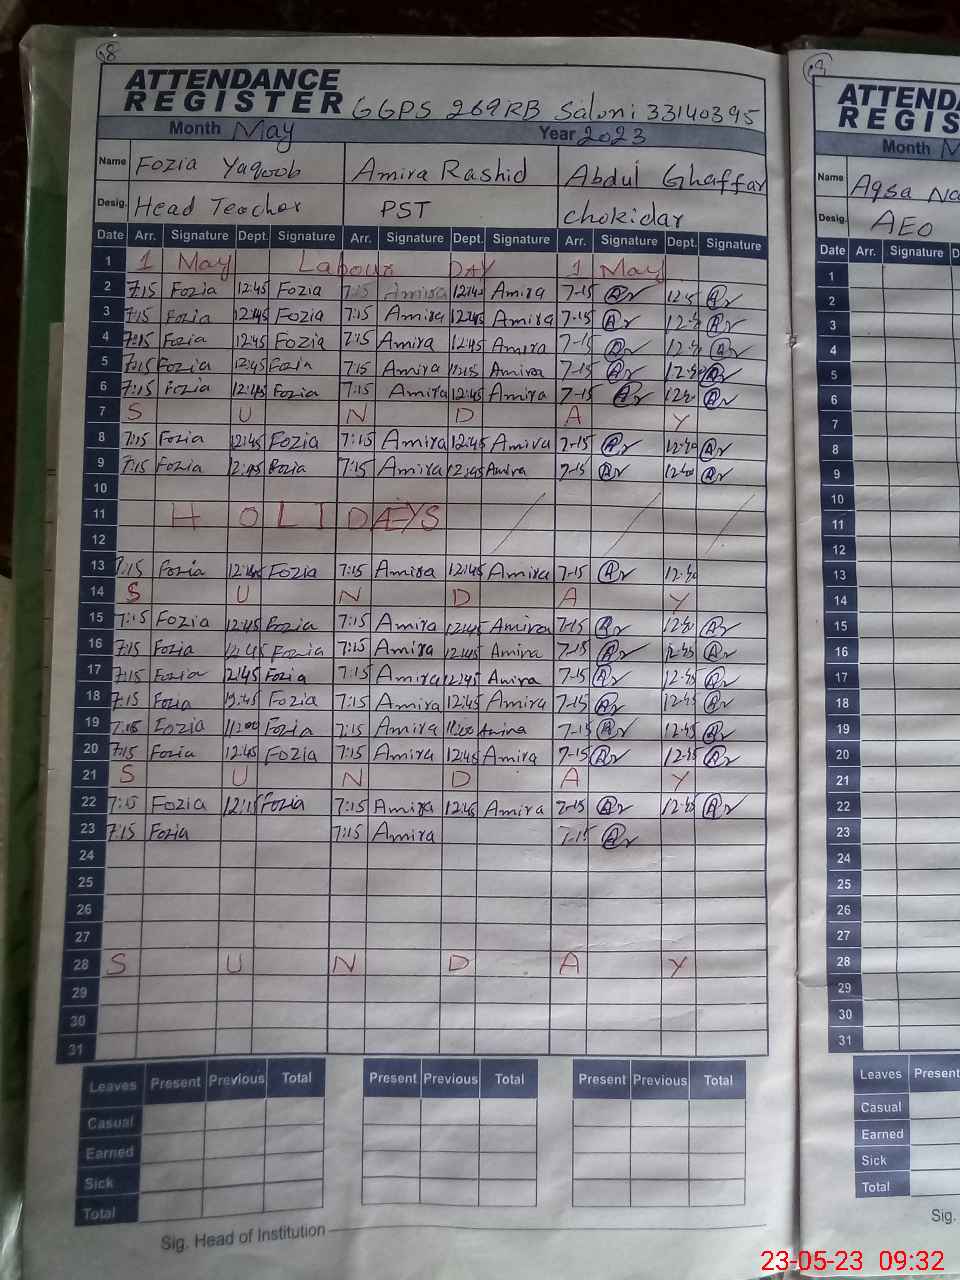 68
ATTENDANCE
REGISTER GGPS 269RB Saloni 33140395
Month May Year 2023
Name Fozia Yaqoob Amira Rashid Abdul Ghaffar
Desig. Head Teacher PST Chokidar
Date Arr. Signature Dept. Signature Arr. Signature Dept. Signature Arr. Signature Dept. Signature
1 1 May Labour DAY 1 May
2 7:15 Fozia 12:45 Fozia 7:15 Amira 12:45 Amira 7-15
3 7:15 Fozia 12:45 Fozia 7:15 Amira 12:45 Amira 7-15
4 7:15 Fozia 12:45 Fozia 7:15 Amira 12:45 Amira 7-15
5 7:15 Fozia 12:45 Fozia 7:15 Amira Amira 7-15
6 7:15 Fozia 12:45 Fozia 7:15 Amira 12:45 Amira 7-15
7 S U N D A Y
8 7:15 Fozia 12:45 Fozia 7:15 Amira 12:45 Amira 7-15
9 7:15 Fozia 12:45 Fozia 7:15 Amira 12:45 Amira 7-15
10
11 HOLIDAYS
12
13 7:15 Fozia 12:45 Fozia 7:15 Amira 12:45 Amira 7-15
14 S U N D A Y
15 7:15 Fozia 12:45 Fozia 7:15 Amira 12:45 Amira 7-15
16 7:15 Fozia 12:45 Fozia 7:15 Amira 12:45 Amira 7-15
17 7:15 Fozia 12:45 Fozia 7:15 Amira 12:45 Amira 7-15
18 7:15 Fozia 12:45 Fozia 7:15 Amira 12:45 Amira 7-15 12-45
19 7:15 Fozia 11:00 Fozia 7:15 Amira 11:00 Amira 7-15 12-45
20 7:15 Fozia 12:45 Fozia 7:15 Amira 12:45 Amira 7-15
21 S U N D A Y
22 7:15 Fozia 12:15 Fozia 7:15 Amira 12:45 Amira 7-15
23 7:15 Fozia 7:15 Amira 7-15
24
25
26
27
28 S U N D A Y
29
30
31
Leaves Present Previous Total Present Previous Total Present Previous Total
Casual
Earned
Sick
Total
Sig. Head of Institution
ATTENDA
REGIS
Month M
Name Aqsa Na
Desig. AEO
Date Arr. Signature D
1
2
3
4
5
6
7
8
9
10
11
12
13
14
15
16
17
18
19
20
21
22
23
24
25
26
27
28
29
30
31
Leaves Present
Casual
Earned
Sick
Total
Sig.
23-05-23 09:32